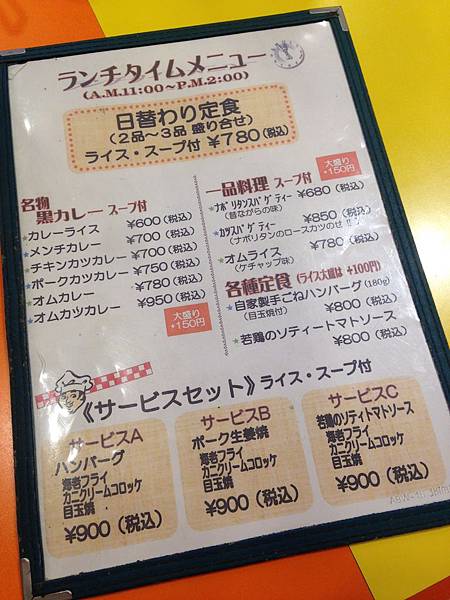 ランチタイムメニュー
(A.M.11:00～P.M.2:00)
日替わり定食
(2品～3品 盛り合せ)
ライス・スープ付 ¥780(税込)
名物
黒カレー スープ付
★カレーライス ¥600(税込)
★メンチカレー ¥700(税込)
★チキンカツカレー ¥700(税込)
★ポークカツカレー ¥750(税込)
★オムカレー ¥780(税込)
★オムカツカレー ¥950(税込)
大盛り
+150円
一品料理 スープ付
大盛り
+150円
★ナポリタンスパゲティー ¥680(税込)
(昔ながらの味)
★カツスパゲティー ¥850(税込)
(ナポリタンのロースカツのせ
★オムライス ¥780(税込)
(ケチャップ味)
各種定食 (ライス大盛は +100円)
★自家製手ごねハンバーグ(180g)
(目玉焼付) ¥800(税込)
★若鶏のソティートマトソース
¥800(税込)
《サービスセット》ライス・スープ付
サービスA
ハンバーグ
海老フライ
カニクリームコロッケ
目玉焼
¥900(税込)
サービスB
ポーク生姜焼
海老フライ
カニクリームコロッケ
目玉焼
¥900(税込)
サービスC
若鶏のソティトマトソース
海老フライ
カニクリームコロッケ
目玉焼
¥900(税込)